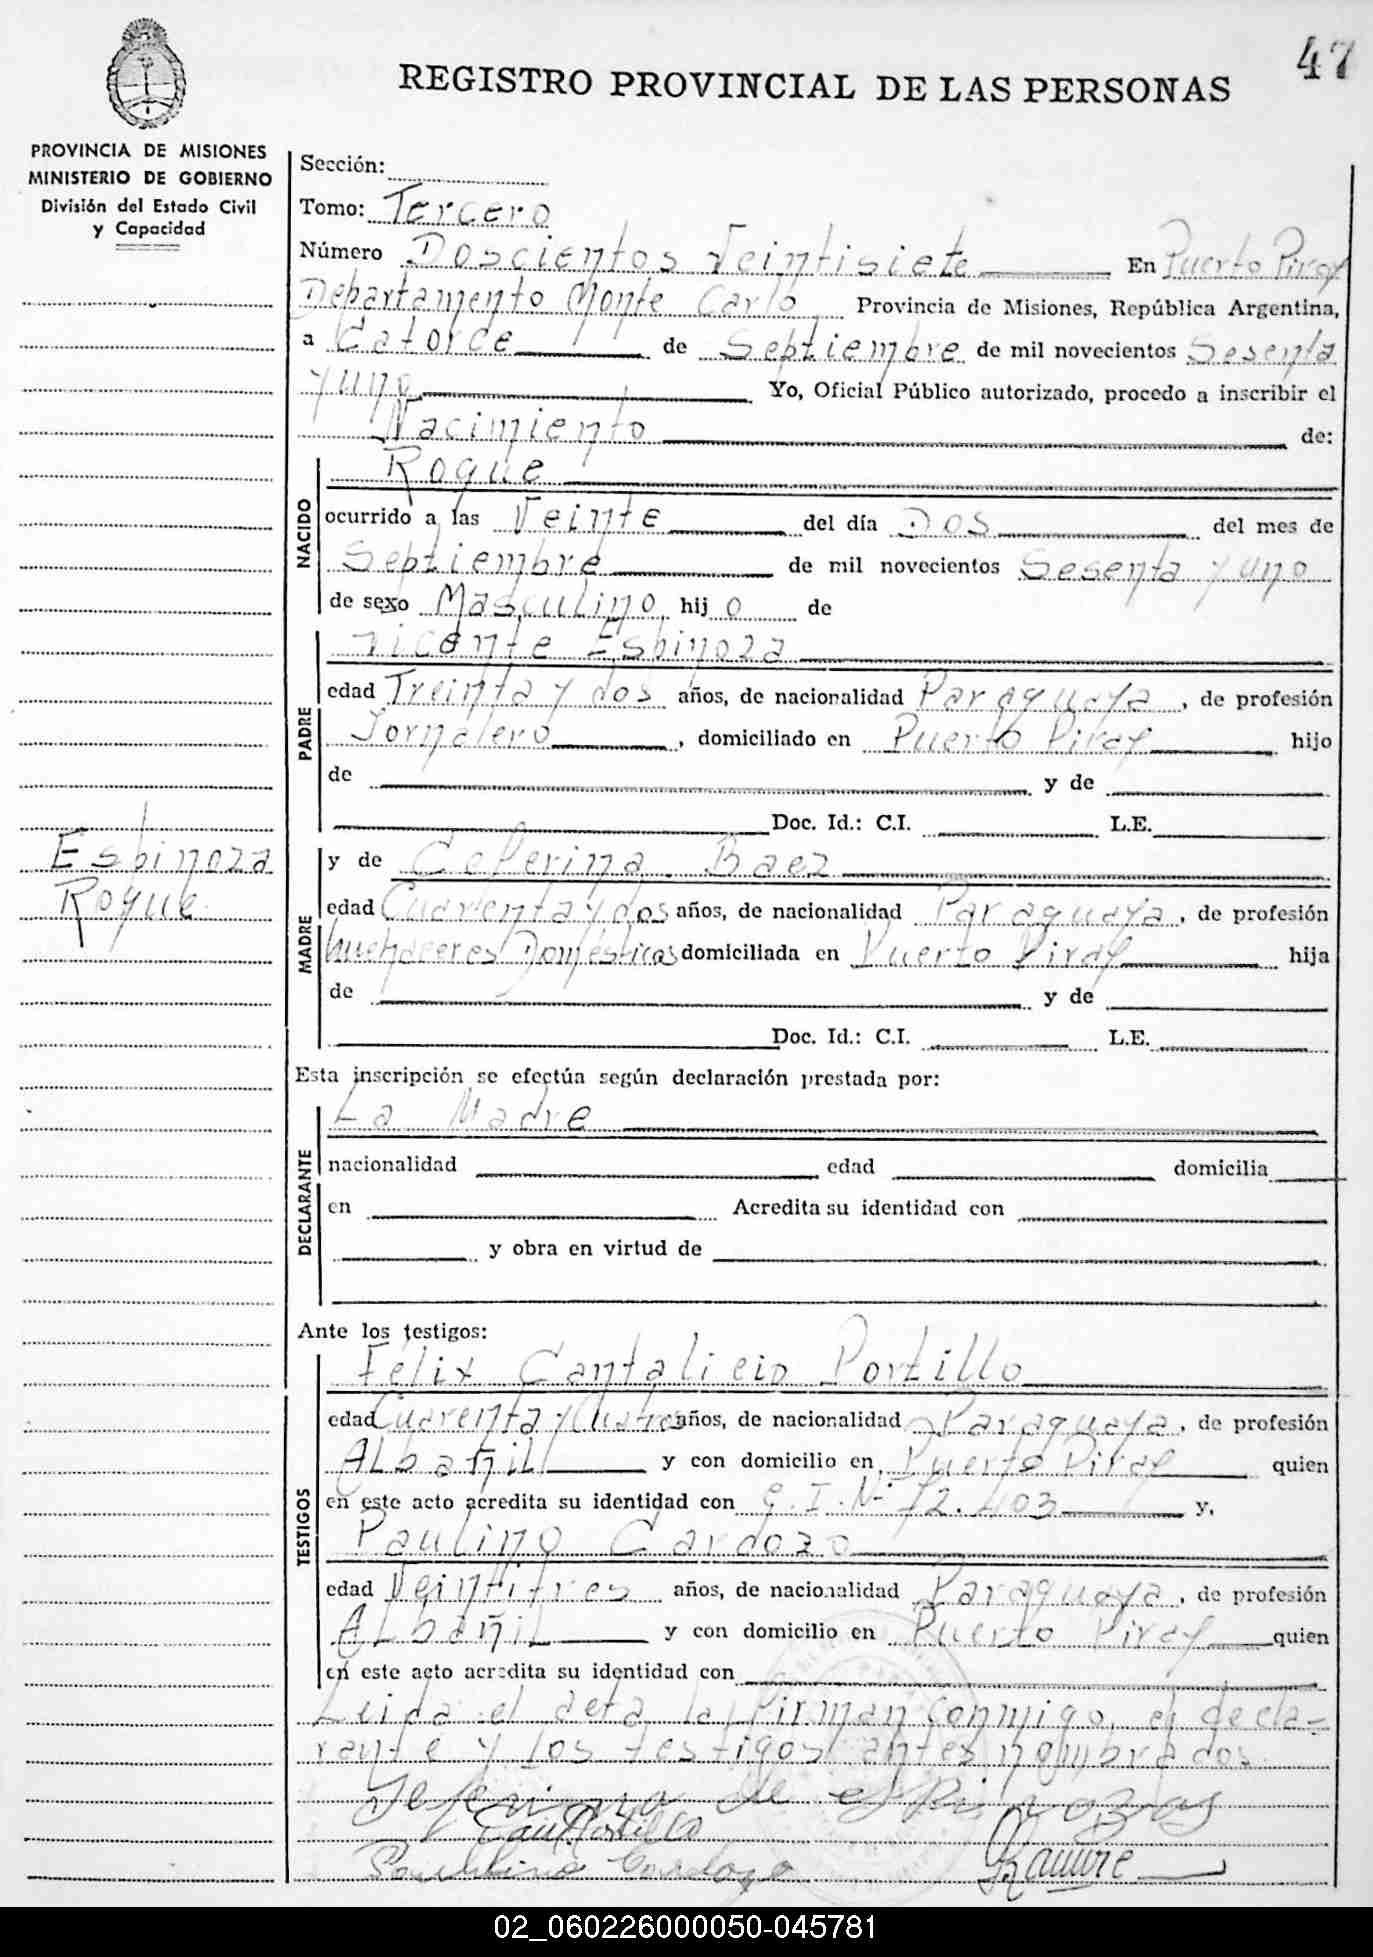 47
REGISTRO PROVINCIAL DE LAS PERSONAS
PROVINCIA DE MISIONES
MINISTERIO DE GOBIERNO
División del Estado Civil
y Capacidad
Espinoza
Roque
Sección:
Tomo: Tercero
Número Doscientos Veintisiete En Puerto Piray
Departamento Monte Carlo Provincia de Misiones, República Argentina,
a Catorce de Septiembre de mil novecientos Sesenta
y uno Yo, Oficial Público autorizado, procedo a inscribir el
Nacimiento de:
NACIDO
Roque
ocurrido a las Veinte del día Dos del mes de
Septiembre de mil novecientos Sesenta y uno
de sexo Masculino hijo de
PADRE
Vicente Espinoza
edad Treinta y dos años, de nacionalidad Paraguaya, de profesión
Jornalero, domiciliado en Puerto Piray hijo
de y de
Doc. Id.: C.I. L.E.
MADRE
y de Ceferina Baez
edad Cuarenta y dos años, de nacionalidad Paraguaya, de profesión
Domésticas domiciliada en Puerto Piray hija
de y de
Doc. Id.: C.I. L.E.
Esta inscripción se efectúa según declaración prestada por:
DECLARANTE
La Madre
nacionalidad edad domicilia
en Acredita su identidad con
y obra en virtud de
Ante los testigos:
TESTIGOS
Félix Cantalicio Portillo
edad Cuarenta y Cuatro años, de nacionalidad Paraguaya, de profesión
Albañil y con domicilio en Puerto Piray quien
en este acto acredita su identidad con C.I. Nº 72.403 y,
Paulino Cardozo
edad Veintitres años, de nacionalidad Paraguaya, de profesión
Albañil y con domicilio en Puerto Piray quien
en este acto acredita su identidad con
Leida el acta la firman conmigo, el decla-
rante y los testigos antes nombrados
Seferina de espinozas
Can Portillo
Paulino Cardozo
02_060226000050-045781